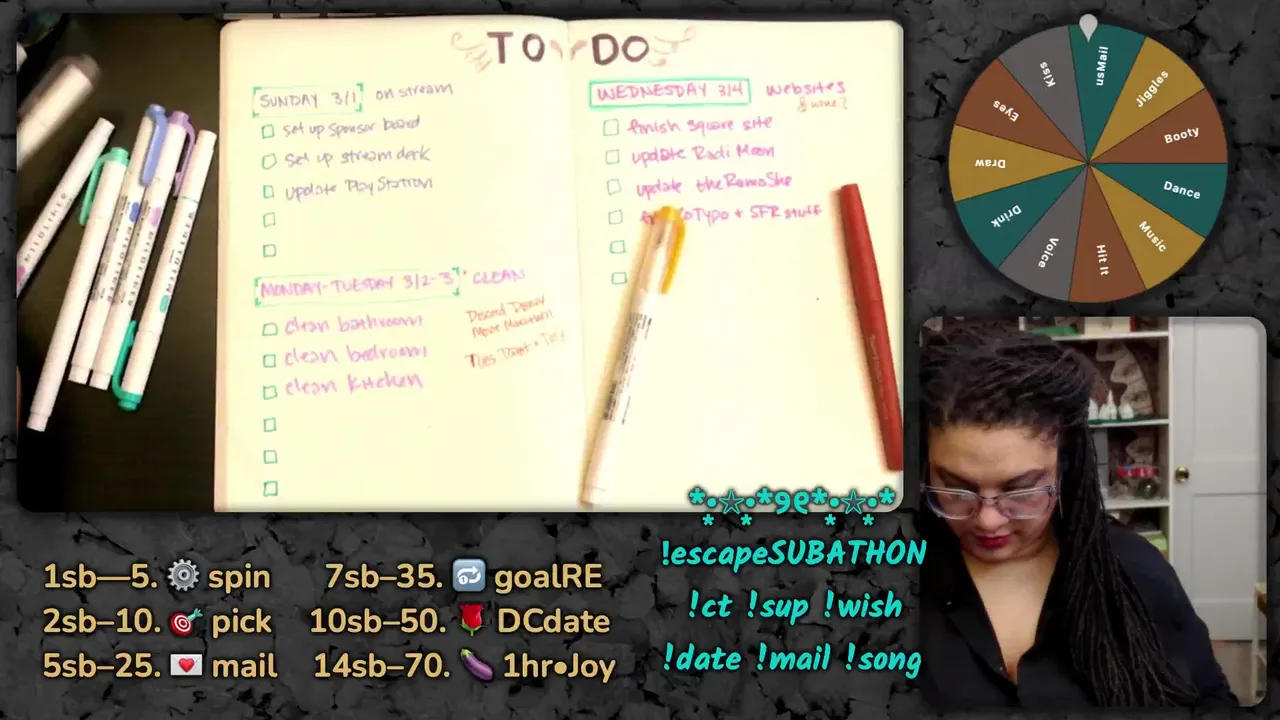 TO DO
SUNDAY 3/1 on stream
set up sponsor board
set up stream deck
update PlayStation
MONDAY-TUESDAY 3/2-3 CLEAN
clean bathroom
clean bedroom
clean kitchen
Discord
Movie Marathon
Tues
WEDNESDAY 3/4 websites
& wine?
finish square site
update Radi Moon
update theRomoShe
Typo + SFR stuff
usMail
Jiggles
Booty
Dance
Music
Hit It
Voice
Drink
Draw
Eyes
Kiss
1sb—5. ⚙️ spin
2sb–10. 🎯 pick
5sb–25. 💌 mail
7sb–35. 🔂 goalRE
10sb–50. 🌹 DCdate
14sb–70. 🍆 1hr•Joy
*•☆•*୨୧*•☆•*
!escapeSUBATHON
!ct !sup !wish
!date !mail !song